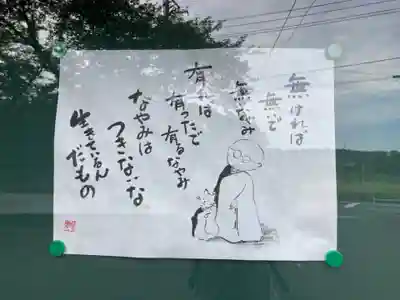 無ければ
無いで
無なやみ
有れば
有ったで
有るなやみ
なやみは
つきないな
生きているん
だもの